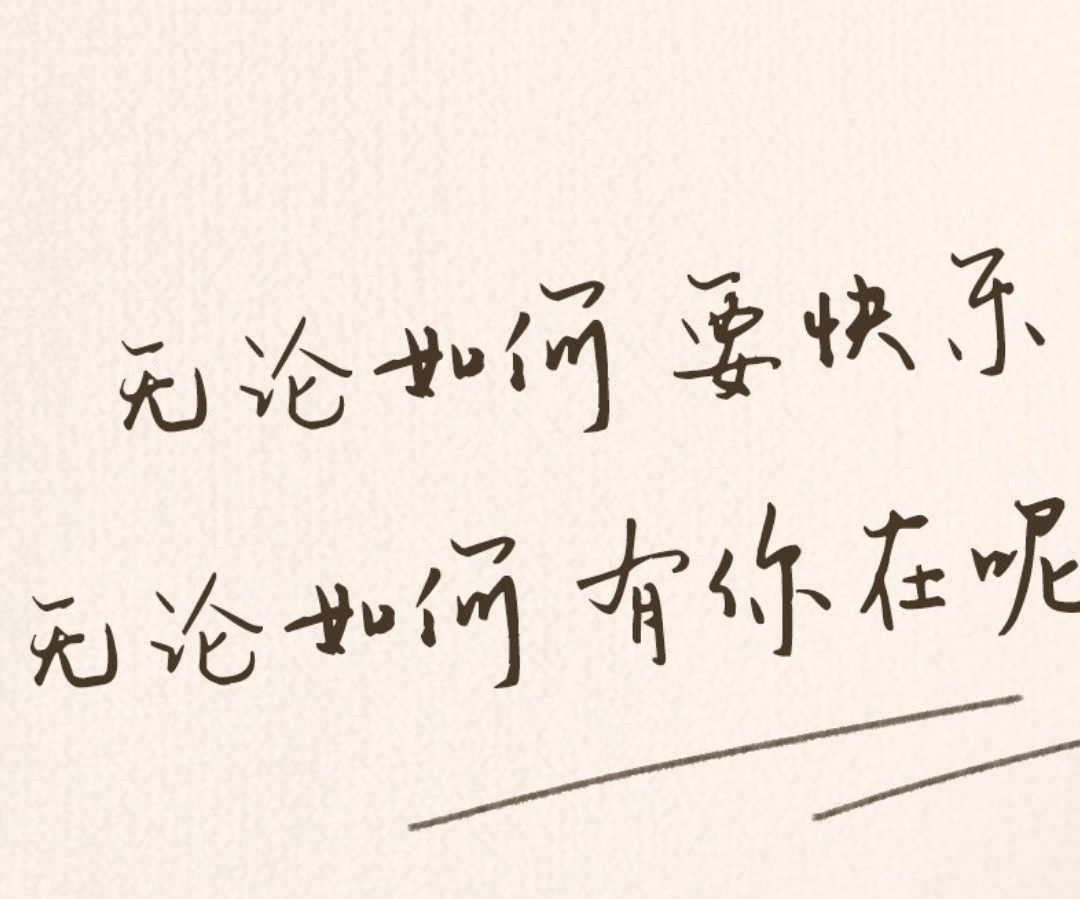 无论如何 要快乐
无论如何 有你在呢